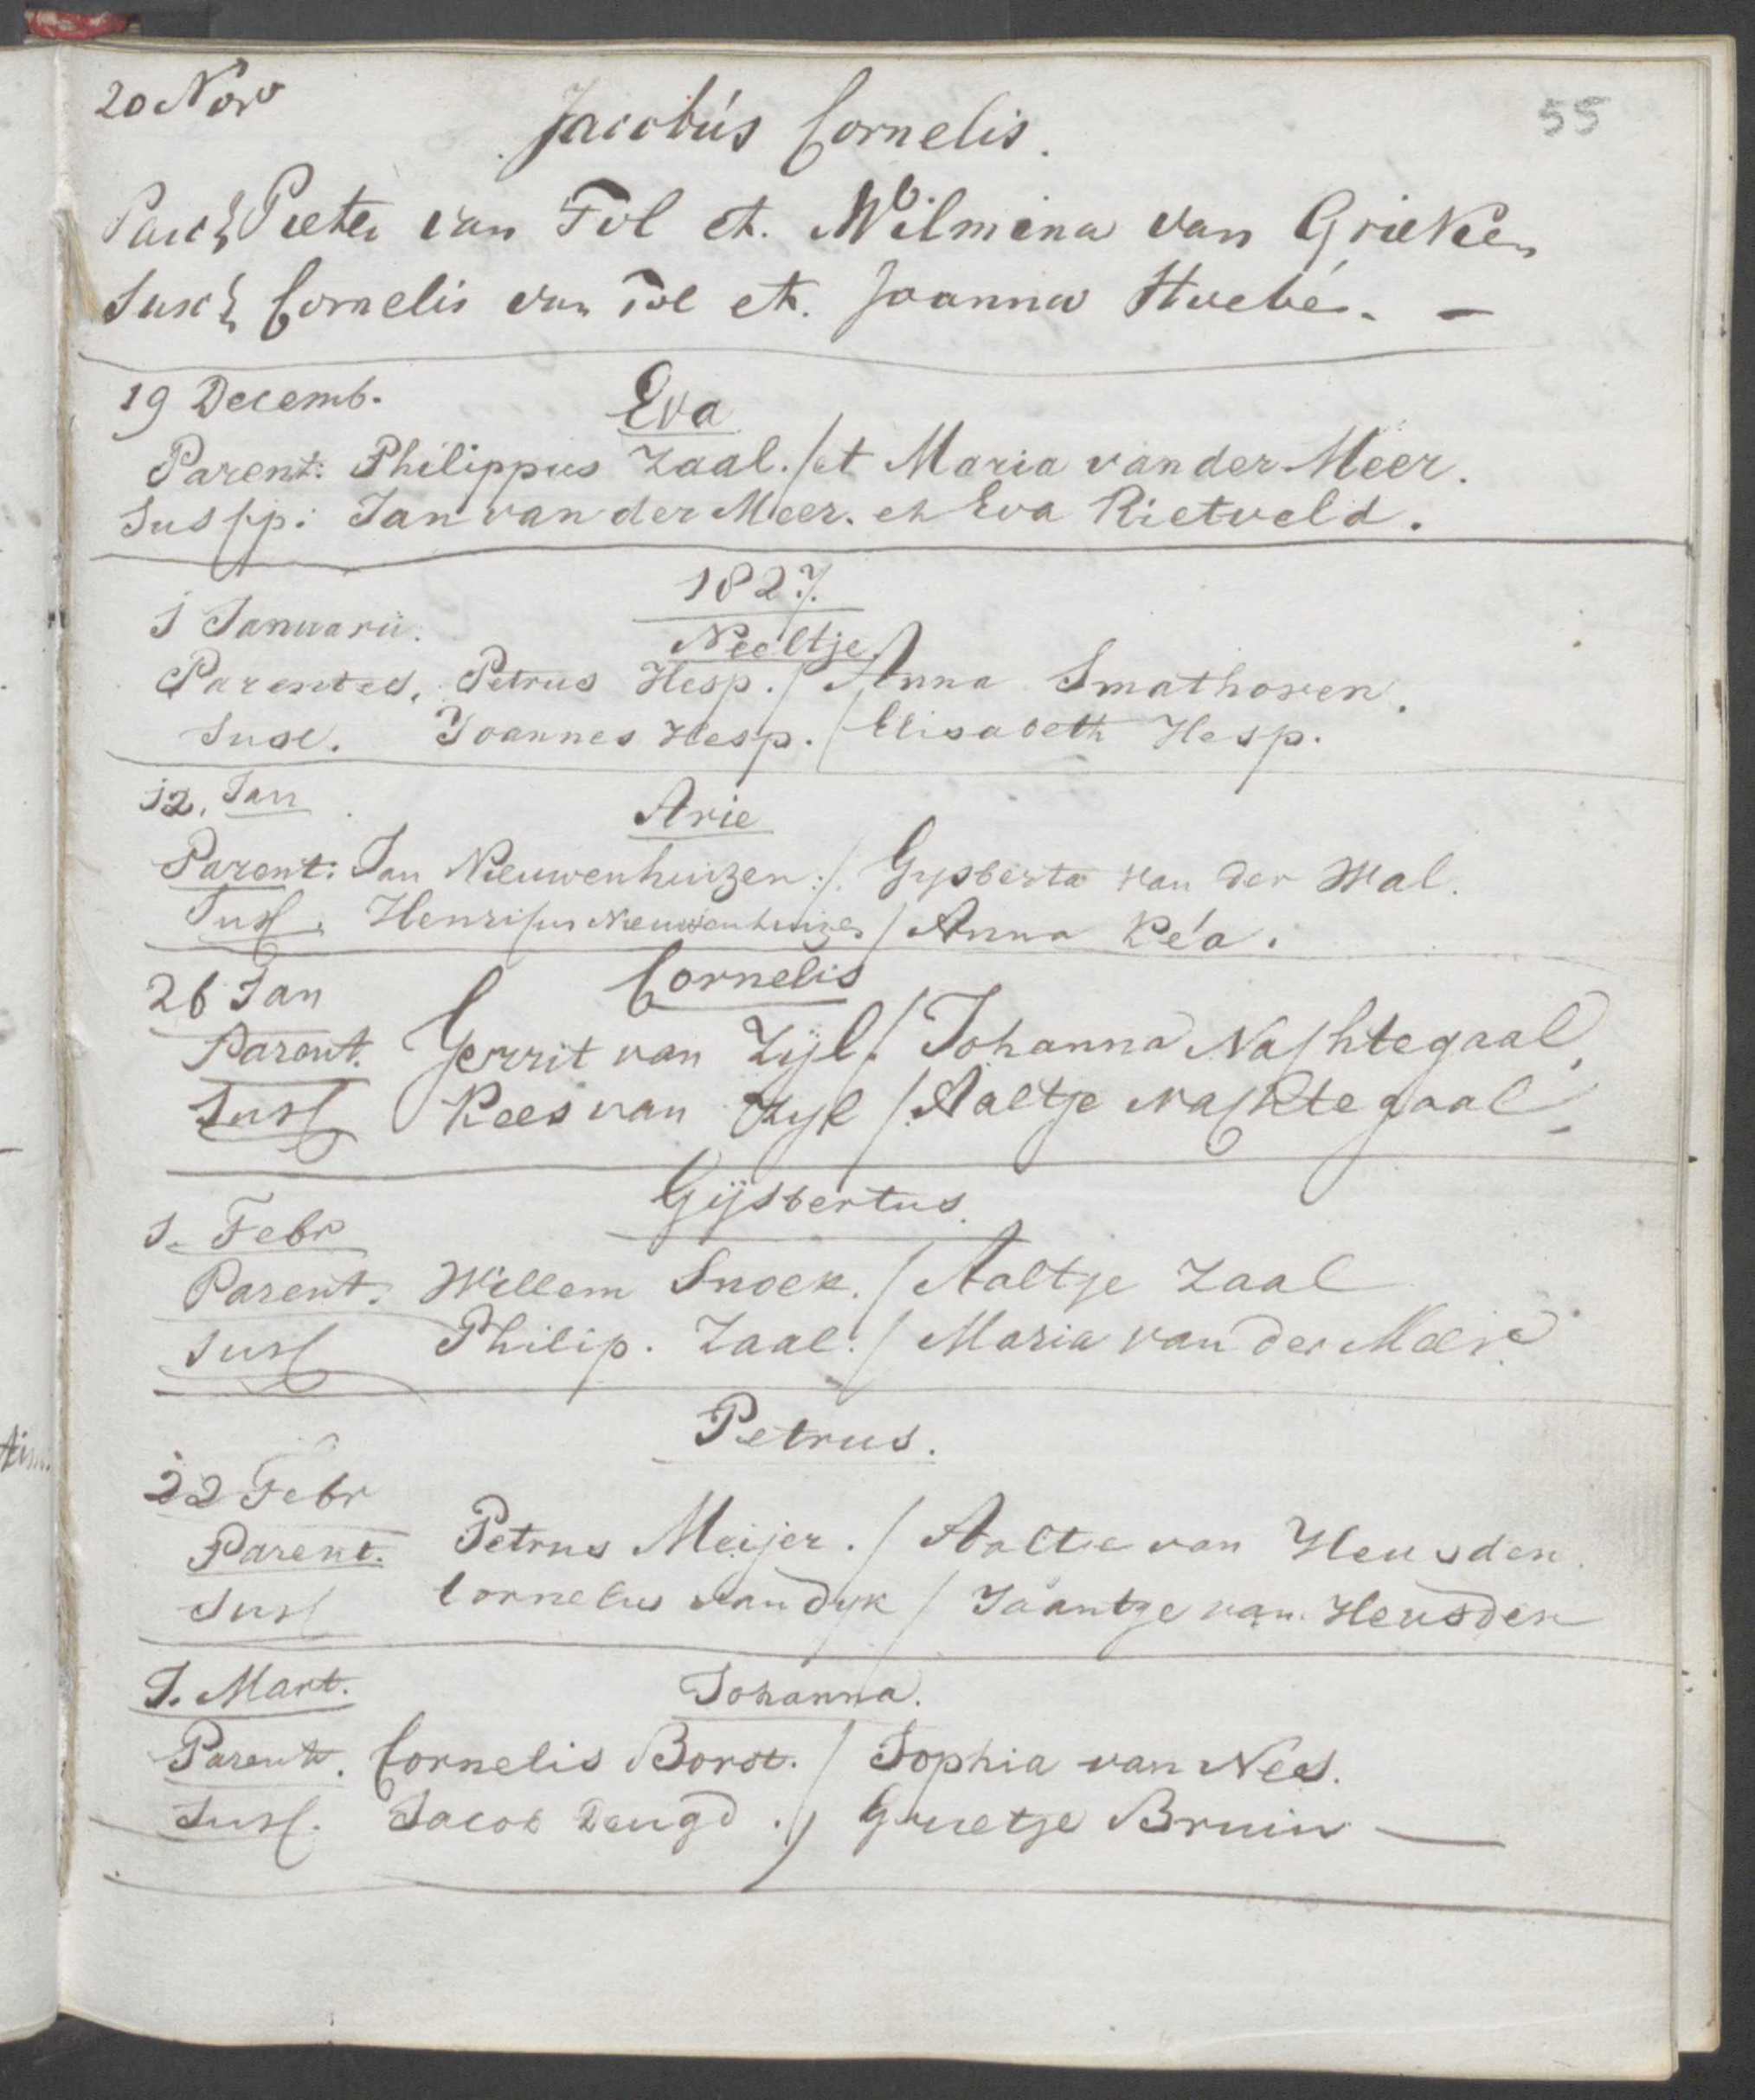 20 Nov
55
Jacobús Cornelis.
Par: Pieter van Tol et. Wilmina van Grieken
Sus: Cornelis van Tol et. Joanna Huebér. -
19 Decemb.
Eva
Parent: Philippus Zaal./et Maria van der Meer.
Sussp: Jan van der Meer. et Eva Rietveld.
1827.
1 Januarii.
Neeltje
Parentes. Petrus Hesp./ Anna Smathoven.
Susc. Joannes Hesp./ Elisabeth Hesp.
12. Jan
Arie
Parent: Jan Nieuwenhuizen:/. Gysberta van der Wal.
Susc. Henricus Nieuwenhuizen / Anna Kéa.
26 Jan
Cornelis
Parent. Gerrit van Zijl./ Johanna Nachtegaal.
Susc Kees van Zyl / Aaltje Nachtegaal.
Gijsbertus.
1. Febr
Parent. Willem Snoek./ Aaltje Zaal
Susc Philip. Zaal./ Maria van der Meer.
Petrus.
22 Febr
Parent. Petrus Meijer./ Aaltje van Heusden.
Susc Cornelus van Dyk / Jaantje van Heusden
1. Mart.
Johanna.
Parent. Cornelis Borst./ Sophia van Nes.
Susc. Jacob Deugd./ Guetje Bruin —